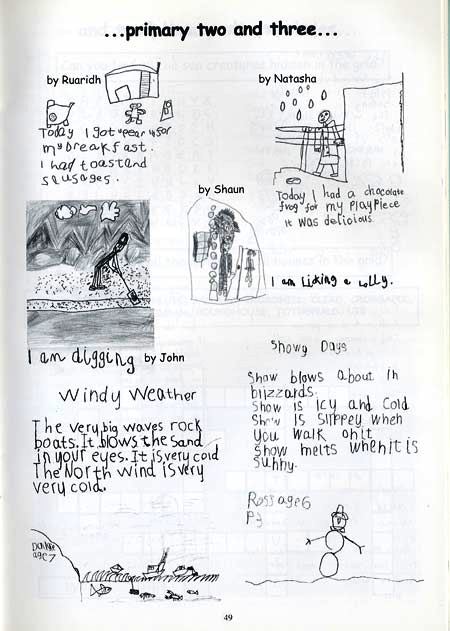 ...primary two and three...
by Ruaridh
Today I got up for
my breakfast.
I had toast and
sausages.
by Natasha
Today I had a chocolate
frog for my playpiece
it was delicious.
by Shaun
I am licking a lolly.
I am digging
by John
Windy Weather
The very big waves rock
boats. It blows the sand
in your eyes. It is very cold
The North wind is very
very cold.
age 7
Snowy Days
Snow blows about in
blizzards.
Snow is icy and cold
Snow is slippey when
you walk on it
Snow melts when it is
sunny.
Ross age 6
P3
49